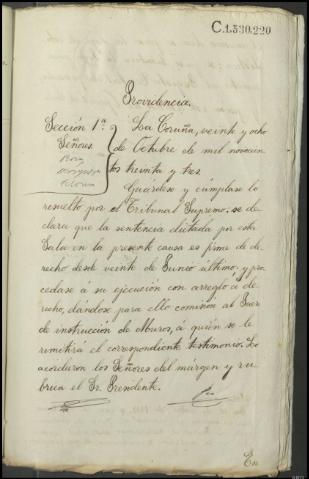 C.1.530.220
Providencia.
Sección 1ª.
Señores
La Coruña, veinte y ocho
de Octubre de mil novecien
tos treinta y tres
Guárdese y cúmplase lo
resuelto por el Tribunal Supremo: se de
clara que la sentencia dictada por esta
Sala en la presente causa es firme de de
recho desde veinte de Junio último; y pro
cédase á su ejecución con arreglo á de
recho, dándose para ello comisión al Juez
de instrucción de Muros, á quién se le
remitirá el correspondiente testimonio. Lo
acordaron los Señores del margen y ru
brica el Sr. Presidente.
En